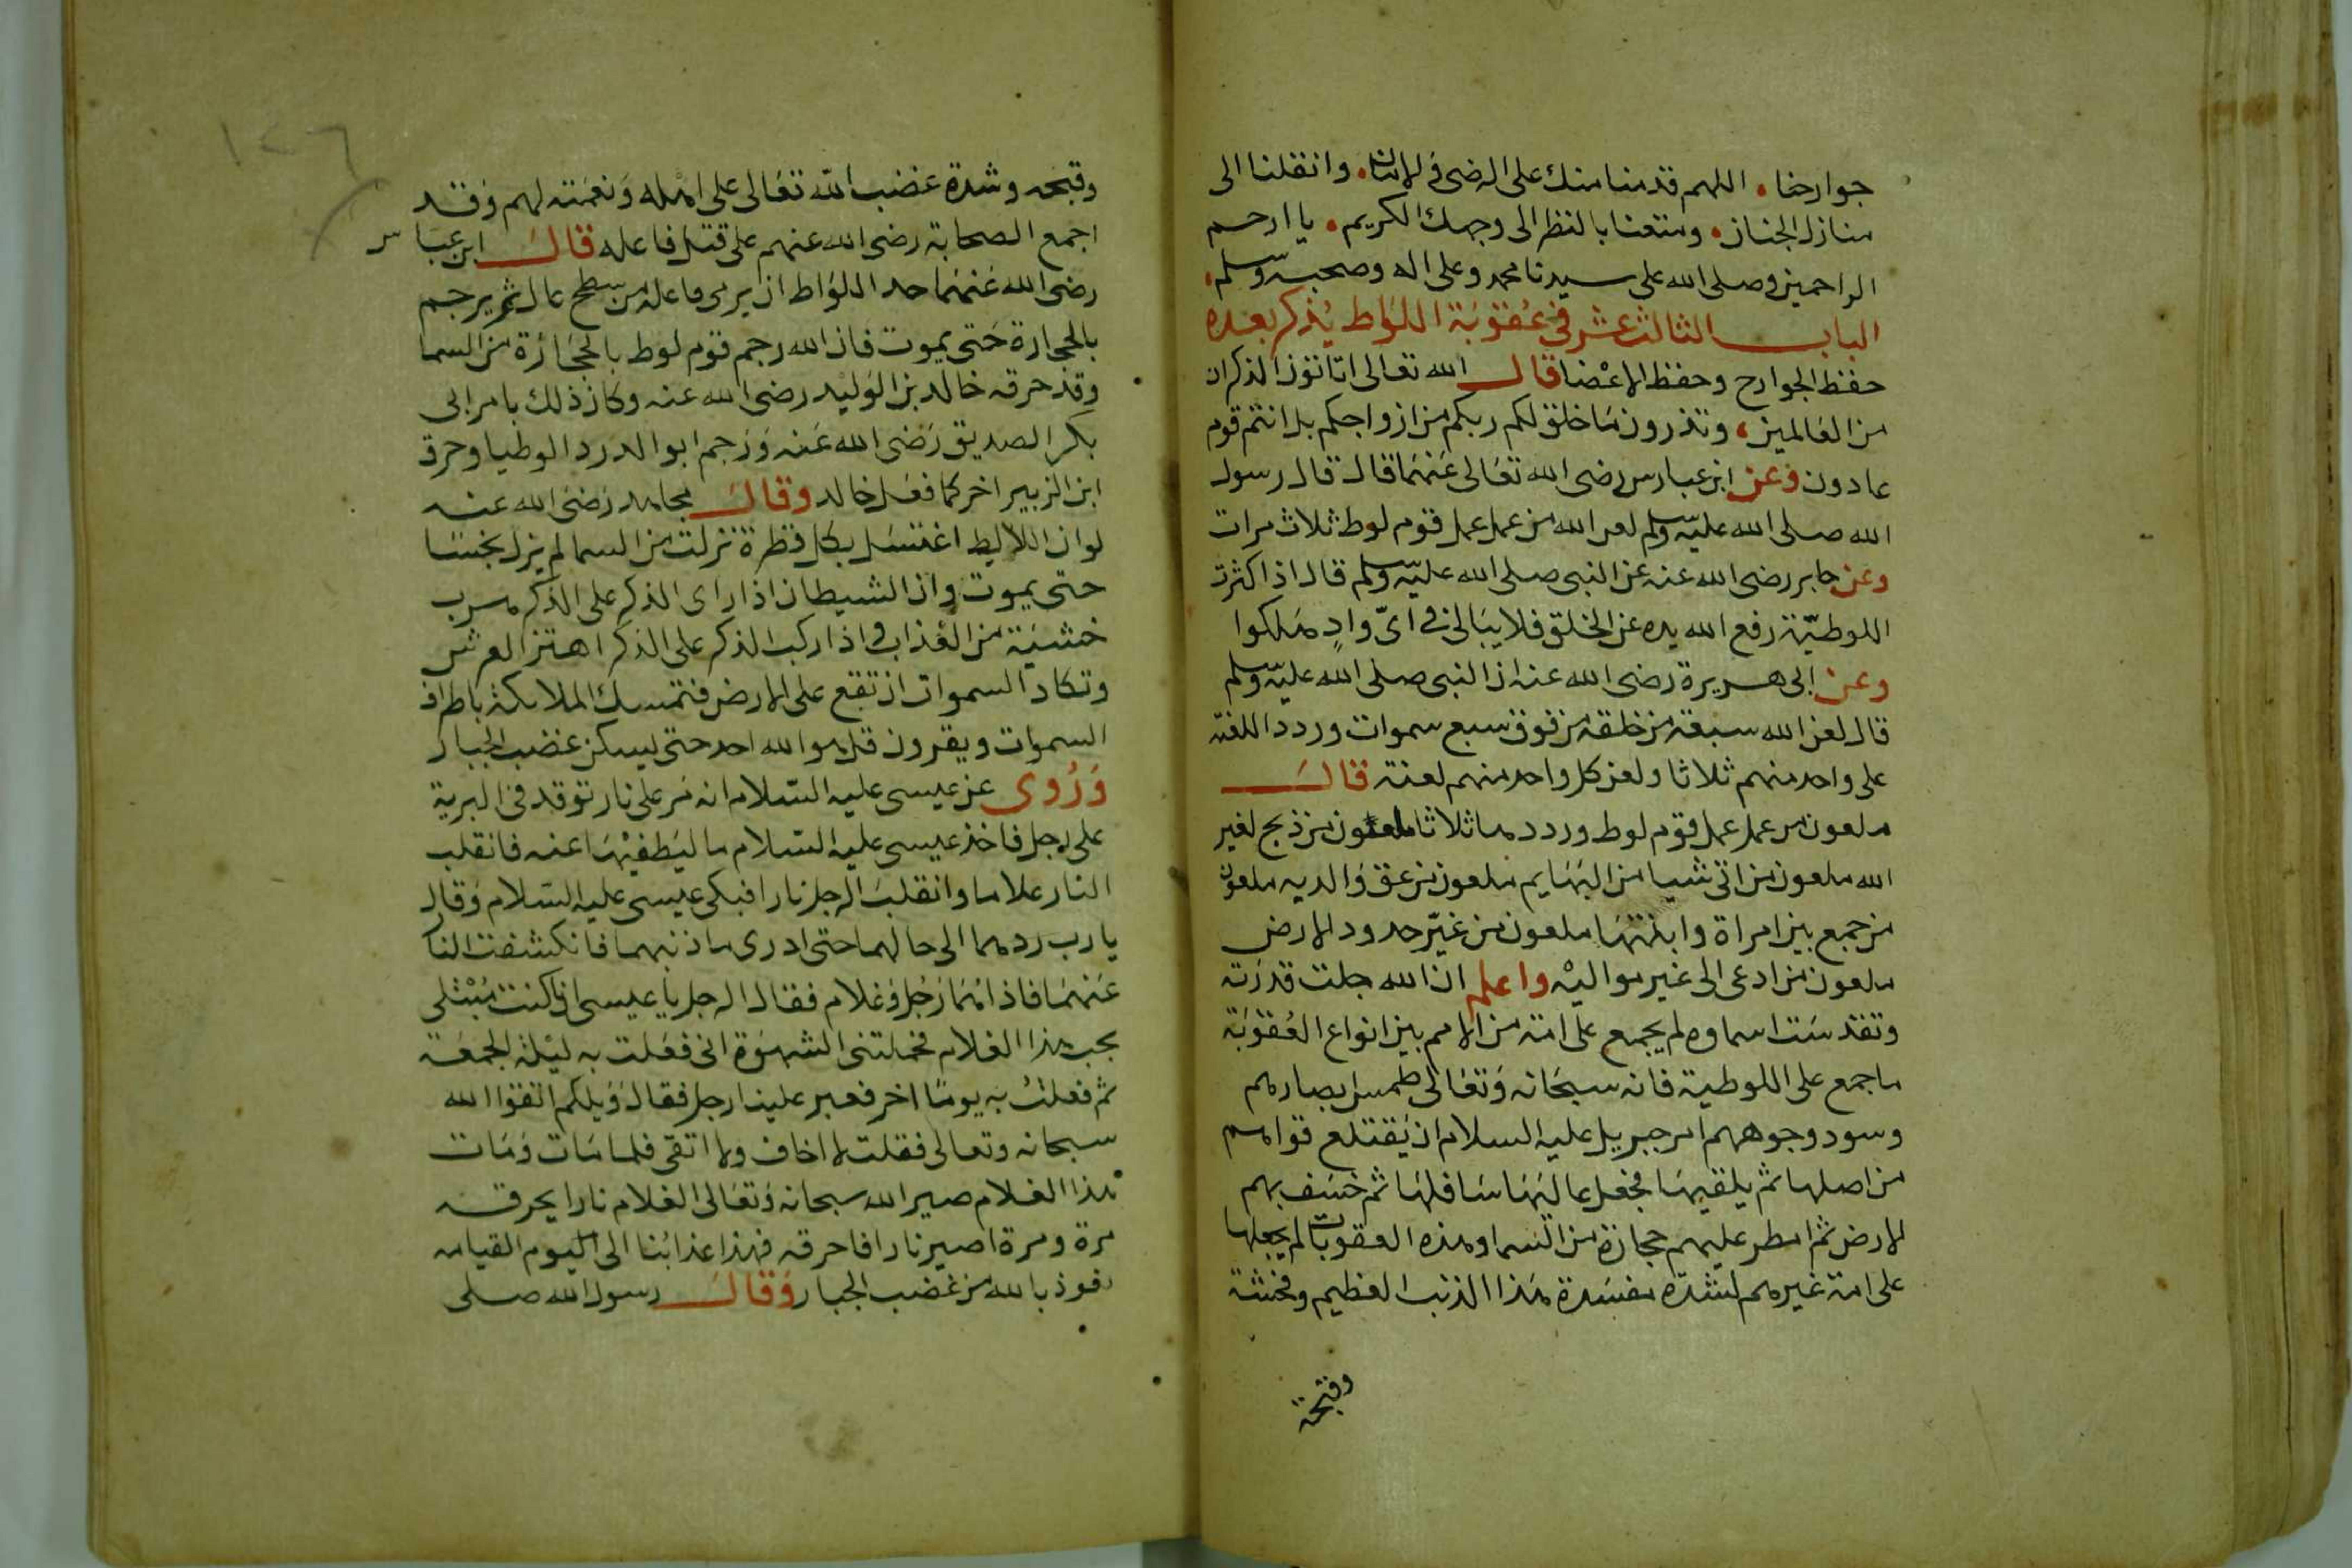 جوارحنا. اللهم قدمنا منك على الرضى في الامان. وانقلنا الى
منازل الجنان. ومتعنا بالنظر الى وجهك الكريم. يا ارحم
الراحمين وصلى الله على سيدنا محمد وعلى اله وصحبه وسلم.
الباب الثالث عشر في عقوبة اللواط يذكر بعده
حفظ الجوارح وحفظ الاعضا قال الله تعالى اتاتون الذكران
من العالمين، وتذرون ما خلق لكم ربكم من ازواجكم بل انتم قوم
عادون وعن ابن عباس رضى الله تعالى عنهما قال قال رسول
الله صلى الله عليه وسلم لعن الله من عمل عمل قوم لوط ثلاث مرات
وعن جابر رضى الله عنه عن النبى صلى الله عليه وسلم قال اذا كثرت
اللوطية رفع الله يده عن الخلق فلا يبالى فى اىّ وادٍ هلكوا
وعن ابى هريرة رضى الله عنه ان النبى صلى الله عليه وسلم
قال لعن الله سبعة من خلقه من فوق سبع سموات وردد اللعنة
على واحد منهم ثلاثا ولعن كل واحد منهم لعنة قال
ملعون من عمل عمل قوم لوط ورددها ثلاثا ملعون من ذبح لغير
الله ملعون من اتى شيا من البهايم ملعون من عق والديه ملعون
من جمع بين امراة وابنتها ملعون من غيّر حدود الارض
ملعون من ادعى الى غير مواليه واعلم ان الله جلت قدرته
وتقدست اسماوه لم يجمع على امة من الامم بين انواع العقوبة
ما جمع على اللوطية فانه سبحانه وتعالى طمس ابصارهم
وسود وجوههم امر جبريل عليه السلام ان يقتلع قراهم
من اصلها ثم يلقيها فجعل عاليها سافلها ثم خسف بهم
الارض ثم امطر عليهم حجارة من السما وهذه العقوبات لم يجعلها
على امة غيرهم لشدة مفسدة هذا الذنب العظيم وفحشه
وقبحه
١٢٦
وقبحه وشدة غضب الله تعالى على اهله ونقمته لهم وقد
اجمع الصحابة رضى الله عنهم على قتل فاعله قال ابن عباس
رضى الله عنهما حد اللواط ان يرمى فاعله من سطح عال ثم يرجم
بالحجارة حتى يموت فان الله رجم قوم لوط بالحجارة من السما
وقد حرقه خالد بن الوليد رضى الله عنه وكان ذلك بامر ابى
بكر الصديق رضى الله عنه ورجم ابو الدردا لوطيا وحرق
ابن الزبير اخر كما فعل خالد وقال مجاهد رضى الله عنه
لو ان اللايط اغتسل بكل قطرة نزلت من السما لم يزل نجسا
حتى يموت وان الشيطان اذا راى الذكر على الذكر هرب
خشية من العذاب واذا ركب الذكر على الذكر اهتز العرش
وتكاد السموات ان تقع على الارض فتمسك الملائكة باطراف
السموات ويقرون قل هو الله احد حتى يسكن غضب الجبار
وروى عن عيسى عليه السلام انه مر على نار توقد فى البرية
على رجل فاخذ عيسى عليه السلام ما ليطفيها عنه فانقلب
النار غلاما وانقلب الرجل نارا فبكى عيسى عليه السلام وقال
يا رب ردهما الى حالهما حتى ادرى ما ذنبهما فانكشفت النار
عنهما فاذا هما رجل وغلام فقال الرجل يا عيسى انى كنت مبتلى
بحب هذا الغلام فحملتنى الشهوة انى فعلت به ليلة الجمعة
ثم فعلت به يوما اخر فعبر علينا رجل فقال ويلكم اتقوا الله
سبحانه وتعالى فقلت لا اخاف ولا اتقى فلما مات ومات
هذا الغلام صير الله سبحانه وتعالى الغلام نارا يحرقه
مرة ومرة اصير نارا فاحرقه فهذا عذابنا الى اليوم القيامه
نعوذ بالله من غضب الجبار وقال رسول الله صلى